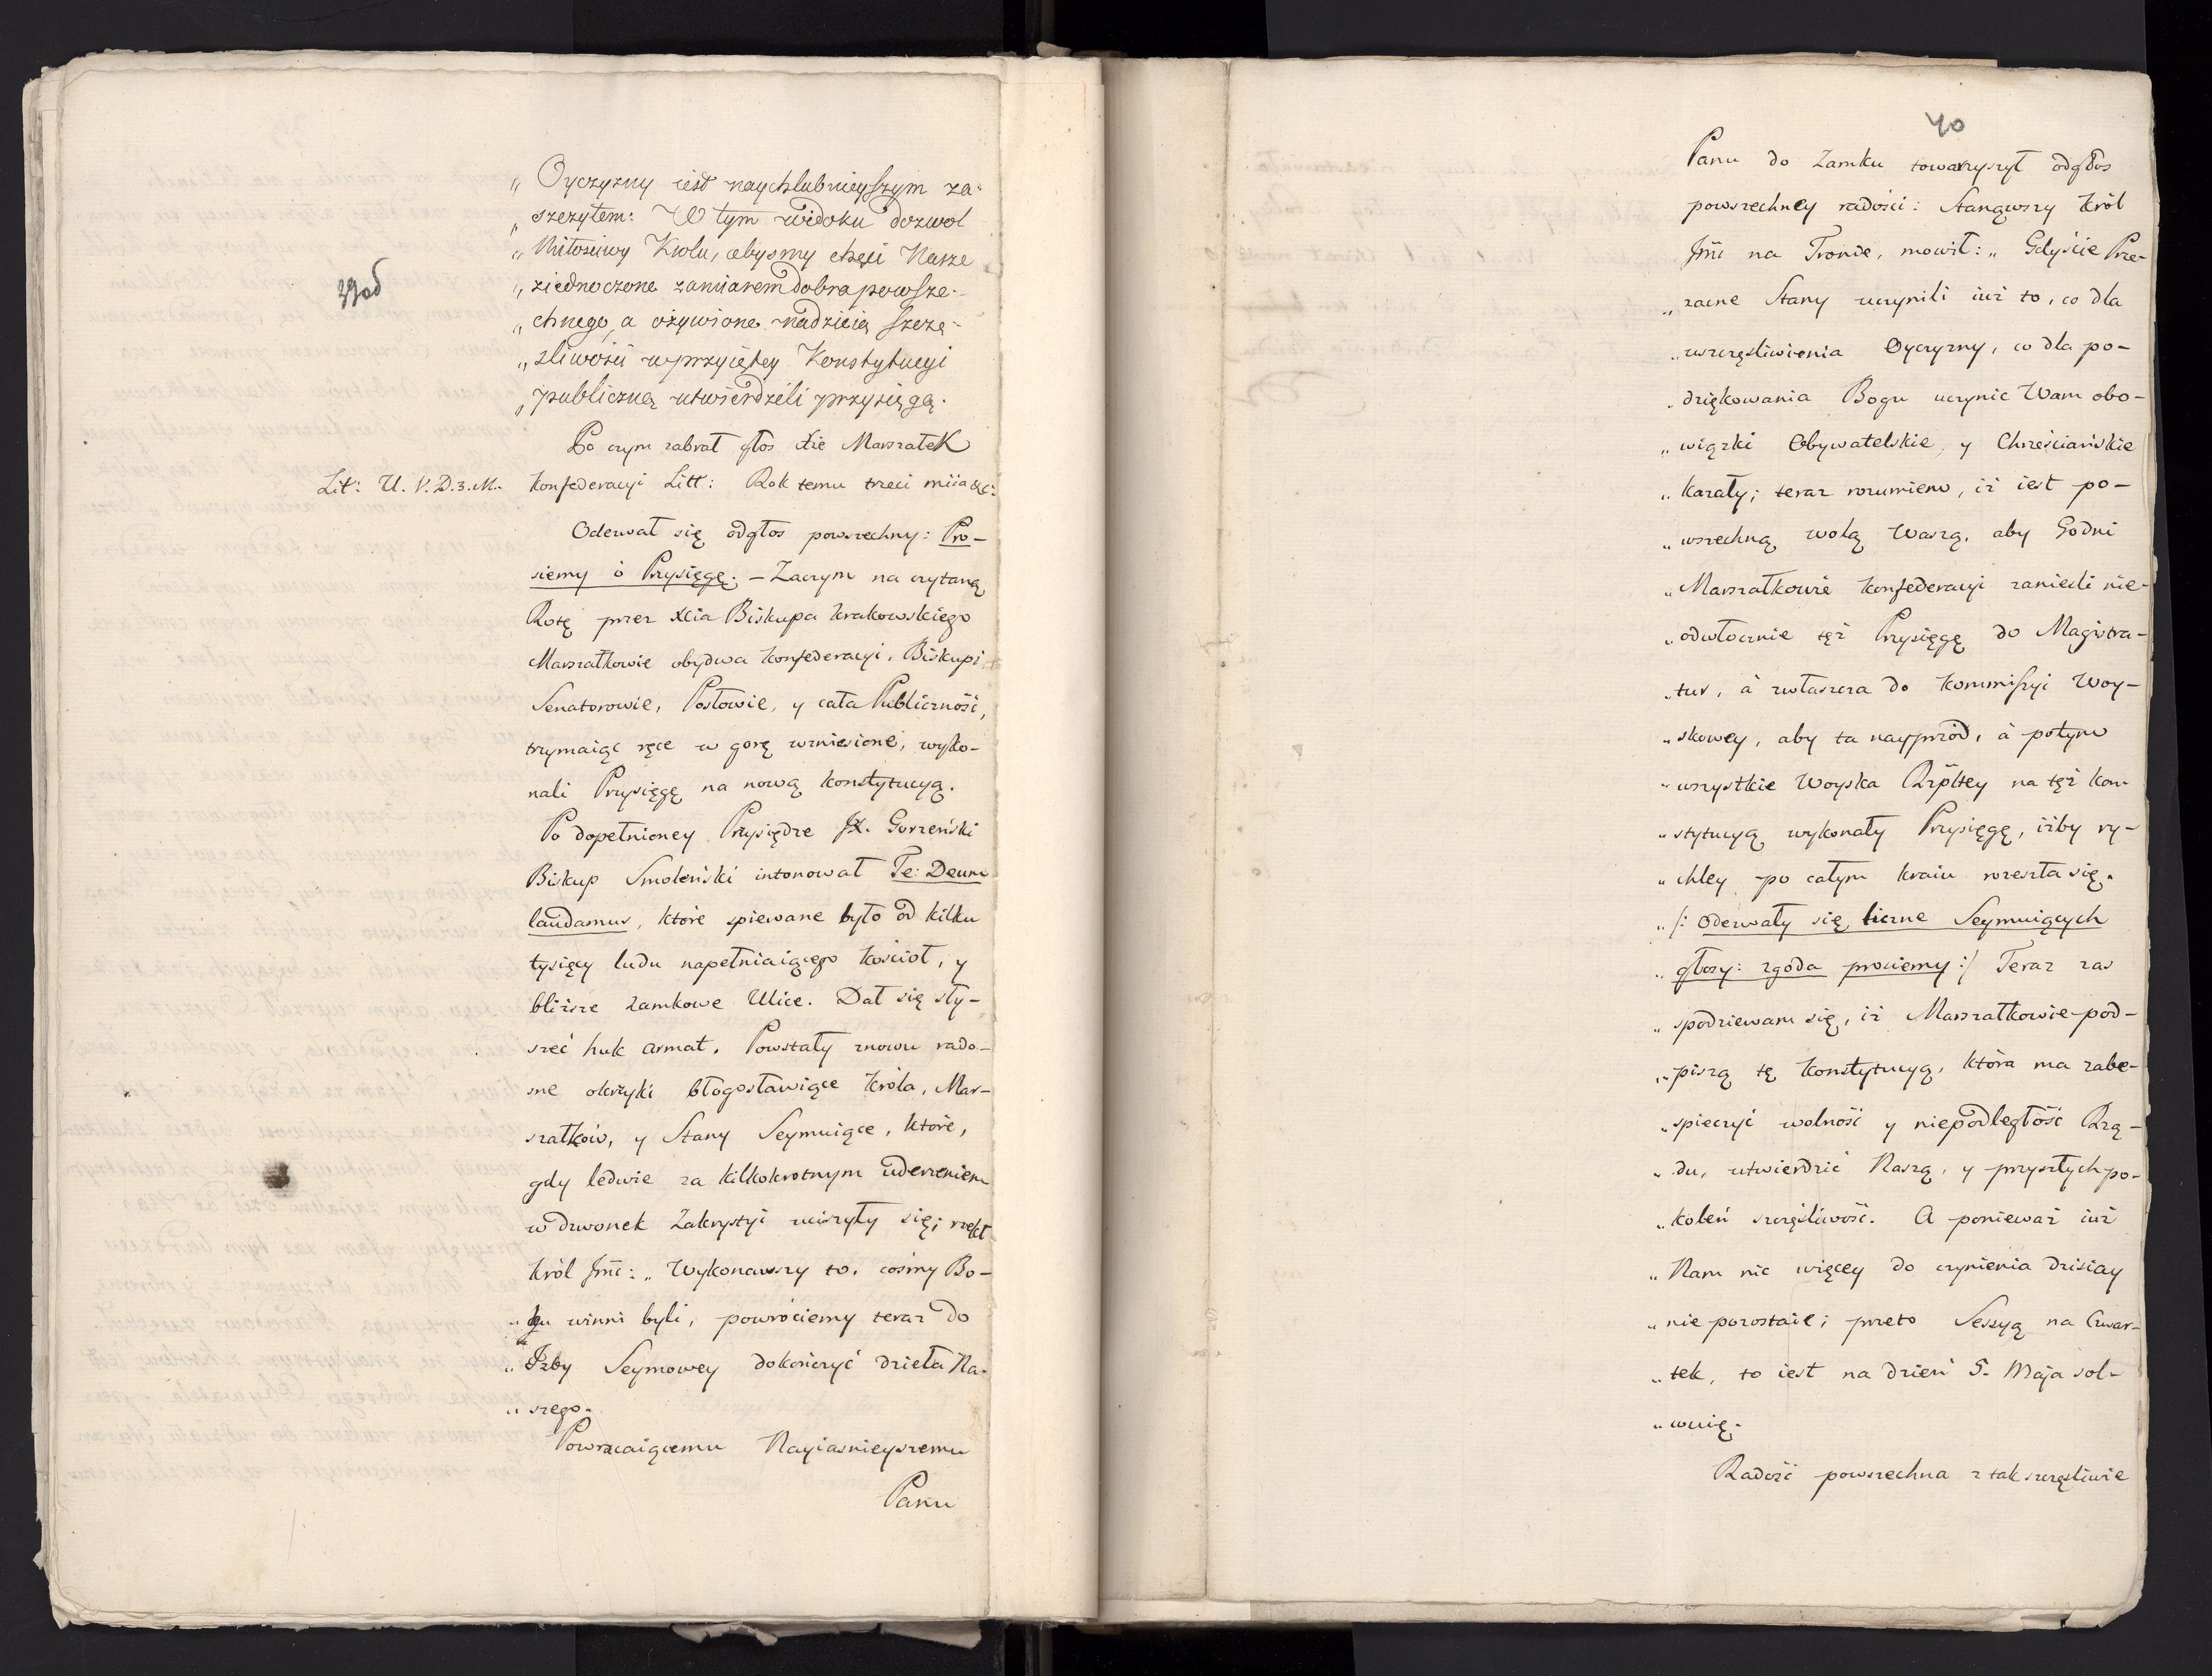 „ Oyczyzny iest naychlubnieyszym za-
„ szczytem: W tym widoku dozwol
„ Miłosciwy Krolu, abysmy chęci Nasze
„ ziednoczone zamiarem dobra powsze-
„ chnego, a ożywione nadzieią szczę-
„ sliwości w przyiętey Konstytucyi
„ publiczną utwierdzili przysięgą.
Po czym zabrał głos Xże Marszałek
Lit: U. V. D. 3. M. Konfederacyi Litt: Rok temu trzeci miia &c:
Oderwał się odgłos powszechny: Pro-
siemy o Przysięgę. – Zaczym na czytaną
Rotę przez Xcia Biskupa Krakowskiego
Marszałkowie obydwa Konfederacyi, Biskupi
Senatorowie, Posłowie, y cała Publiczność,
trzymaiąc ręce w gorę wzniesione, wyko-
nali Przysięgę na nową Konstytucyą.
Po dopełnioney Przysiędze JX. Gorzeński
Biskup Smoleński intonował Te: Deum
laudamus, które spiewane było od kilku
tysięcy ludu napełniaiącego Kościoł, y
bliższe zamkowe Ulice. Dał się sły-
szeć huk armat. Powstały znowu rado-
sne okrzyki błogosławiące Króla, Mar-
szałków, y Stany Seymuiące, które,
gdy ledwie za kilkokrotnym uderzeniem
w dzwonek Zakrystyi uciszyły się; rzekł
Król Jmć: „ Wykonawszy to, cośmy Bo-
„ gu winni byli, powrociemy teraz do
„ Izby Seymowey dokończyć dzieła Na-
„ szego.
Powracaiącemu Nayiasnieyszemu
Panu
40
Panu do Zamku towarzyszył odgłos
powszechney radości: Stanąwszy Król
Jmć na Tronie, mowił: „ Gdyście Prze-
„ zacne Stany uczynili iuż to, co dla
„ uszczęśliwienia Oyczyzny, co dla po-
„ dziękowania Bogu uczynić Wam obo-
„ wiązki Obywatelskie y Chrześciańskie
„ kazały; teraz rozumiem, iż iest po-
„ wszechną wolą Waszą, aby Godni
„ Marszałkowie Konfederacyi zaniesli nie-
„ odwłocznie tęż Przysięgę do Magistra-
„ tur, à zwłaszcza do Kommissyi Woy-
„ skowey, aby ta nayprzód, à potym
„ wszystkie Woyska Rzpltey na tęż Kon-
„ stytucyą wykonały Przysięgę, iżby ry-
„ chley po całym kraiu rozeszła się.
„ /: Oderwały się liczne Seymuiących
„ głosy: zgoda prosiemy :/ Teraz zas
„ spodziewam się, iż Marszałkowie pod-
„ piszą tę Konstytucyą, która ma zabe-
„ spieczyć wolność y niepodległość Rzą-
„ du, utwierdzić Naszą, y przyszłych po-
„ koleń szczęśliwość. A ponieważ iuż
„ Nam nic więcey do czynienia dzisiay
„ nie pozostaie; przeto Sessyą na Czwar-
„ tek, to iest na dzień 5. Maja sol-
„ wuię.
Radość powszechna z tak szczęśliwie